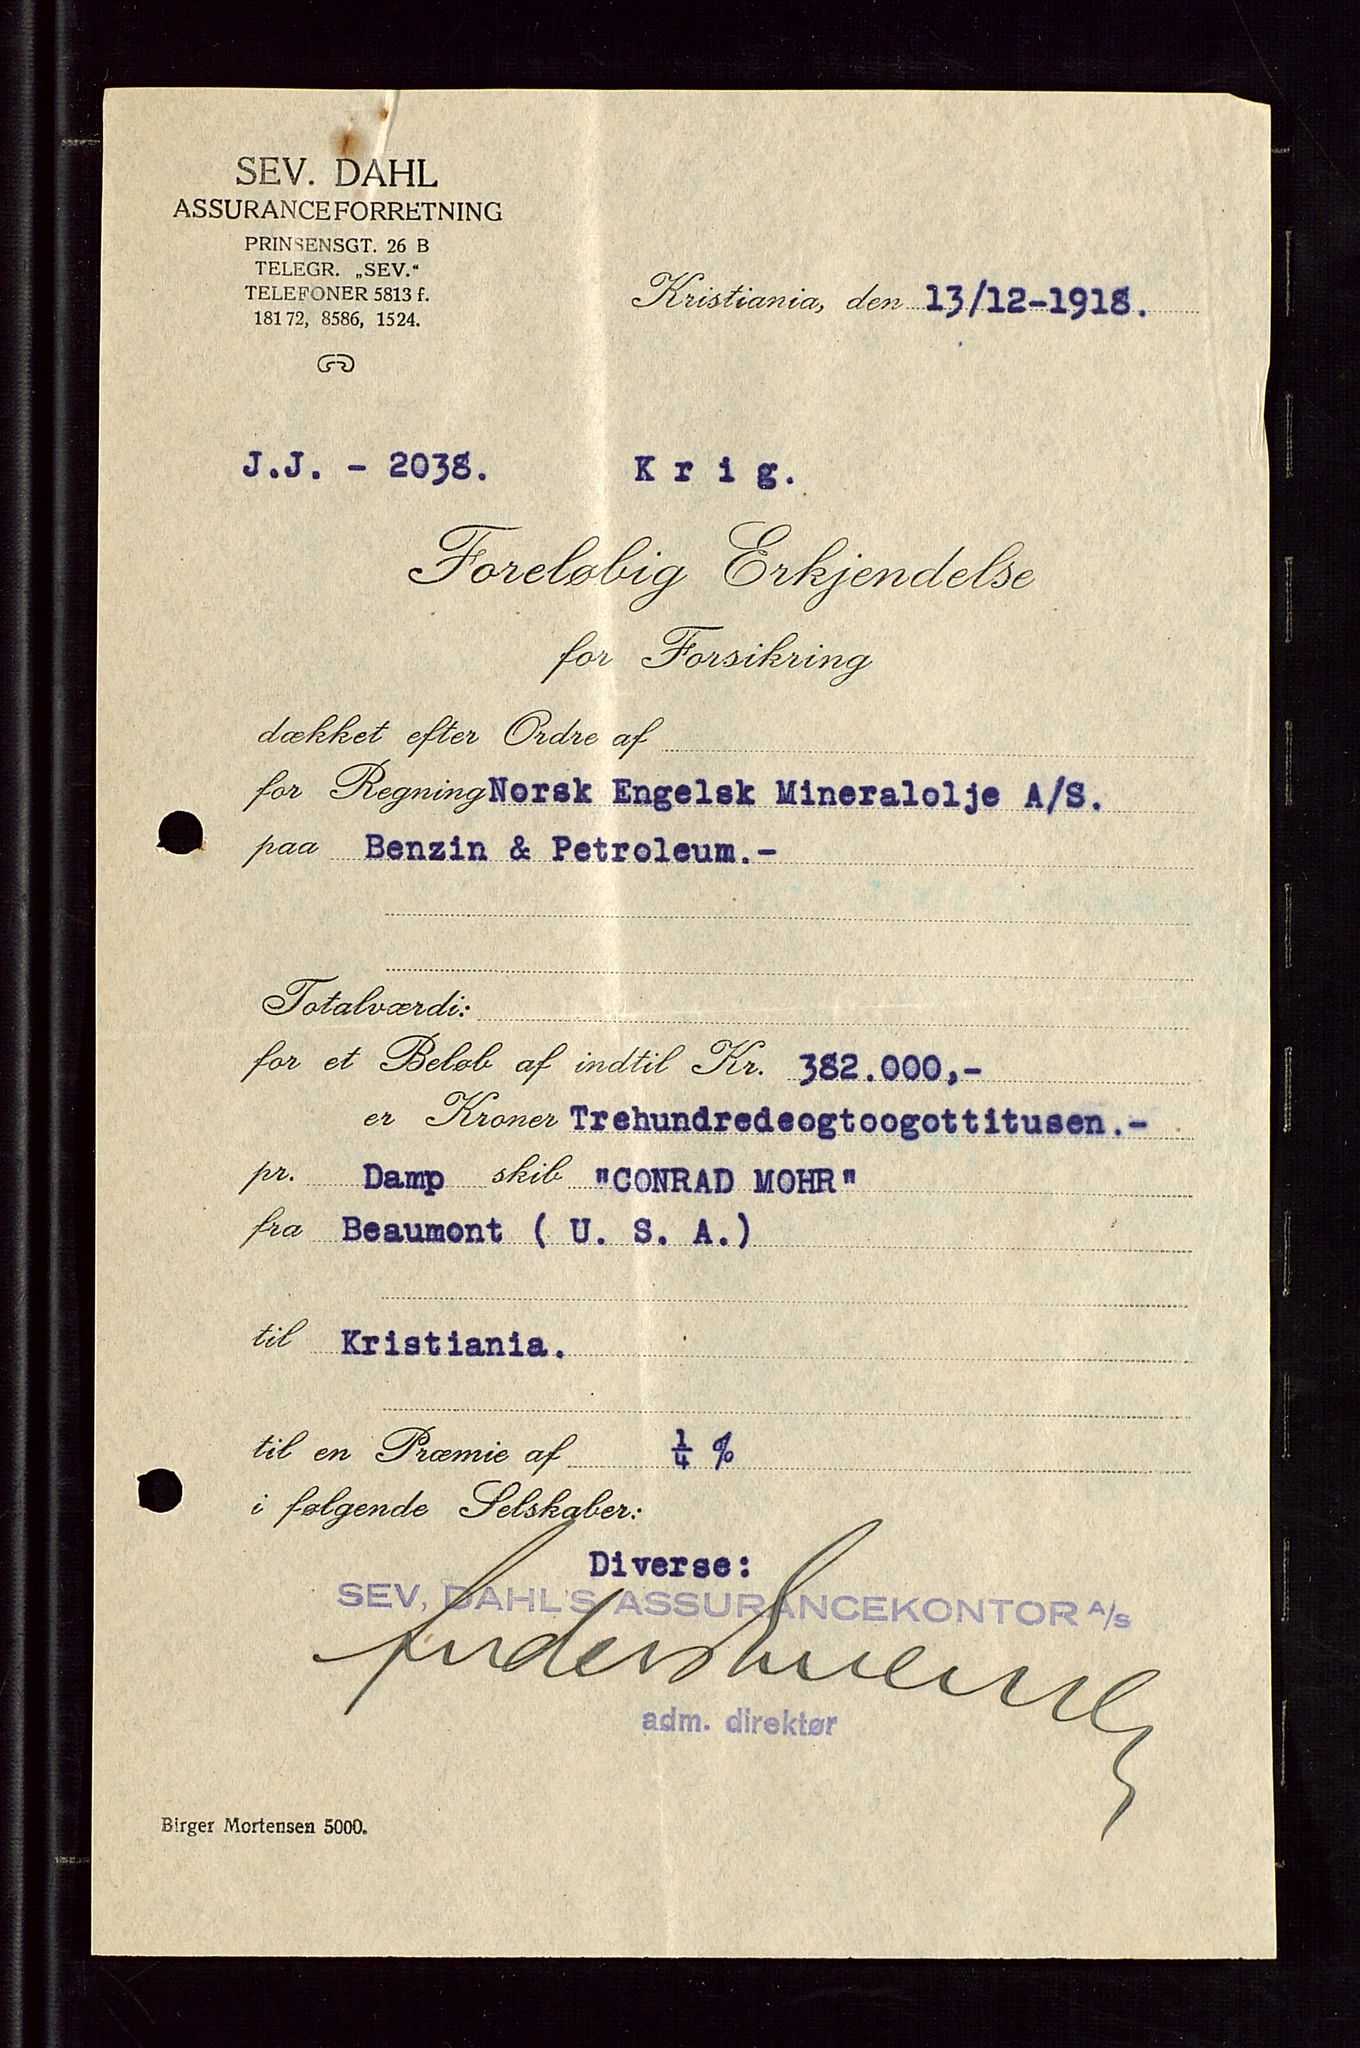 SEV. DAHL
ASSURANCEFORRETNING
PRINSENSGT. 26 B
TELEGR. „SEV.“
TELEFONER 5813 f.
18172, 8586, 1524.
Kristiania, den 13/12-1918.
J.J. - 2038. Krig.
Foreløbig Erkjendelse
for Forsikring
dækket efter Ordre af
for Regning Norsk Engelsk Mineralolje A/S.
paa Benzin & Petroleum.-
Totalværdi:
for et Beløb af indtil Kr. 382.000,-
er Kroner Trehundredeogtoogottitusen.-
pr. Damp skib "CONRAD MOHR"
fra Beaumont ( U. S. A.)
til Kristiania.
til en Præmie af 1/4 %
i følgende Selskaber:
Diverse:
SEV. DAHL'S ASSURANCEKONTOR A/S
adm. direktør
Birger Mortensen 5000.